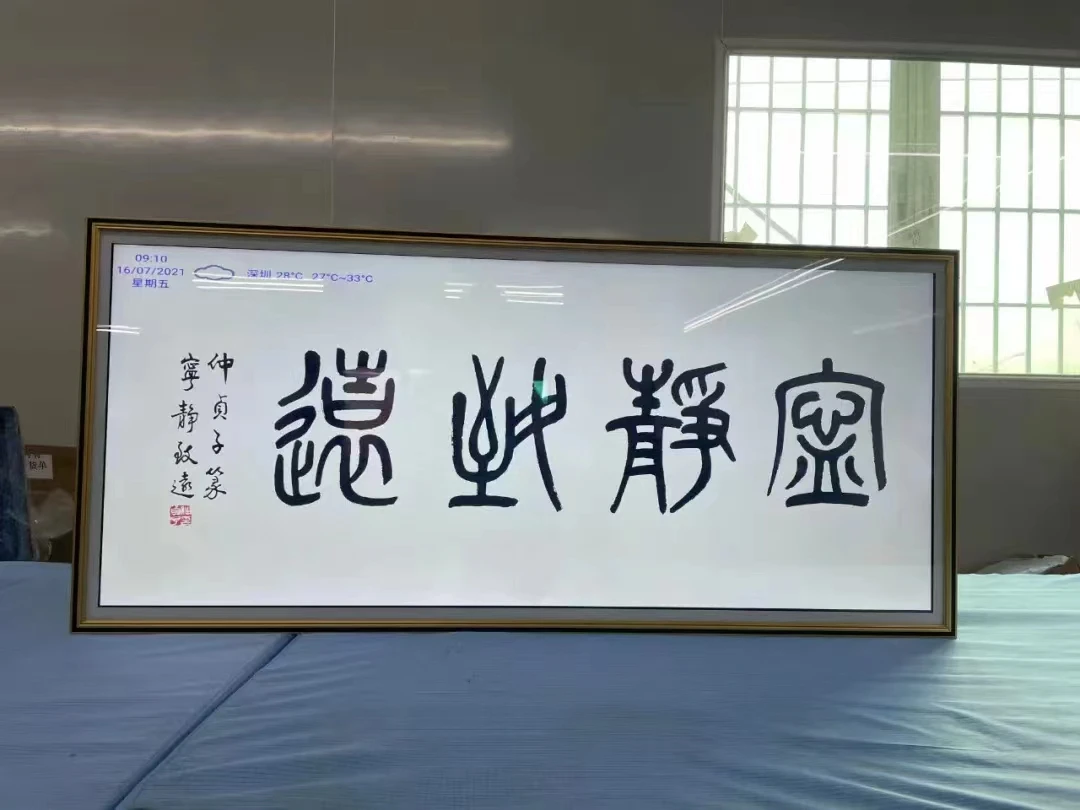 09:10
16/07/2021
星期五
深圳 28°C 27°C~33°C
寧靜致遠
仲貞子篆
寧靜致遠